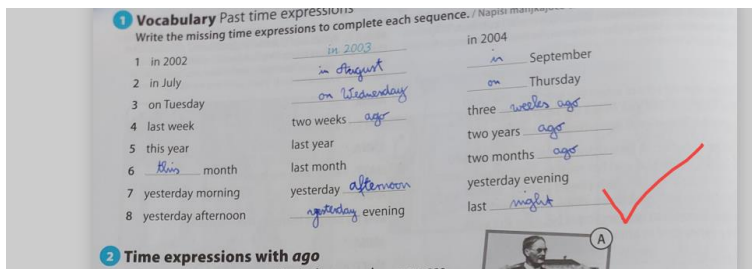 1 Vocabulary Past time expressions
Write the missing time expressions to complete each sequence. / Napiši
1 in 2002 in 2003 in 2004
2 in July in August in September
3 on Tuesday on Wednesday on Thursday
4 last week two weeks ago three weeks ago
5 this year last year two years ago
6 this month last month two months ago
7 yesterday morning yesterday afternoon yesterday evening
8 yesterday afternoon yesterday evening last night
A
2 Time expressions with ago